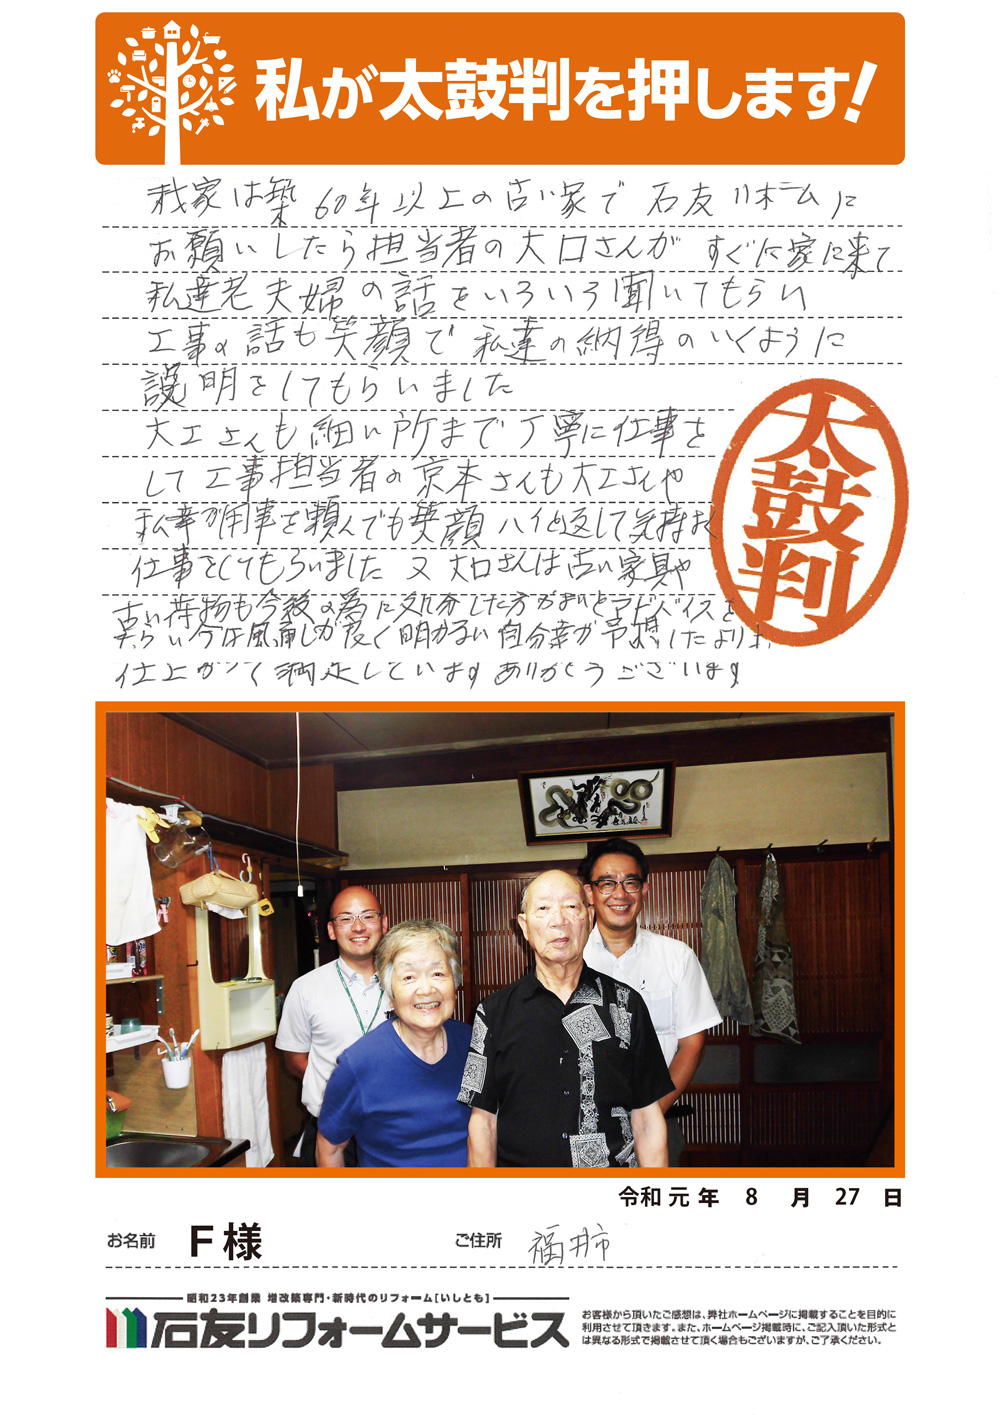 私が太鼓判を押します!
我家は築60年以上の古い家で 石友リホームに
お願いしたら担当者の大口さんが すぐに家に来て
私達老夫婦の話をいろいろ聞いてもらい
工事の話も笑顔で 私達の納得のいくように
説明をしてもらいました
大工さんも細い所まで丁寧に仕事を
して工事担当者の京本さんも大工さんや
私達が用事を頼んでも笑顔 ハイと返して気持よく
仕事をしてもらいました 又 大口さんは古い家具や
古い荷物も今後の為に処分した方がよいとアドバイスを
もらい今は風通しが良く明かるい自分達が予想したより
仕上がって満足しています ありがとうございます
太鼓判
令和 元 年 8 月 27 日
お名前 F様 ご住所 福井市
昭和23年創業 増改築専門・新時代のリフォーム[いしとも]
石友リフォームサービス
お客様から頂いたご感想は、弊社ホームページに掲載することを目的に
利用させて頂きます。また、ホームページ掲載時に、ご記入頂いた形式と
は異なる形式で掲載させて頂く場合もございますが、ご了承ください。